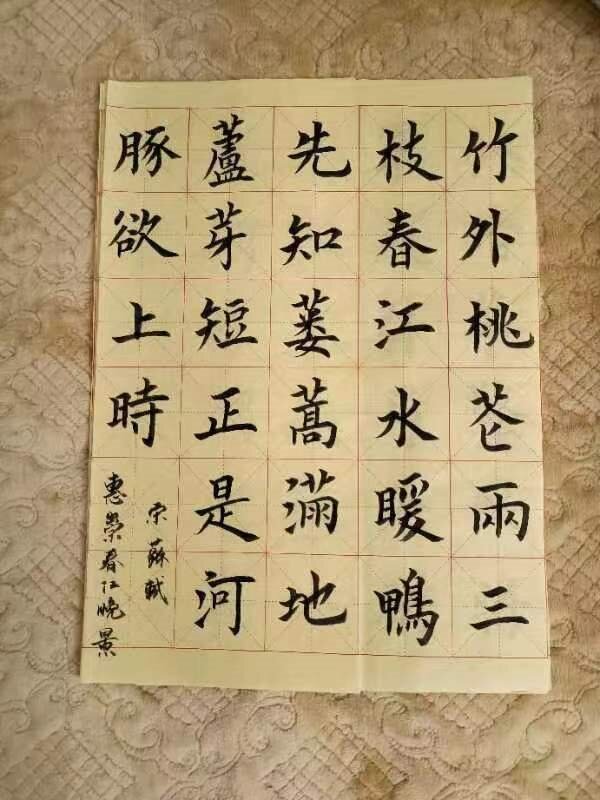 竹外桃花兩三
枝春江水暖鴨
先知蔞蒿滿地
蘆芽短正是河
豚欲上時
宋蘇軾
惠崇春江晚景